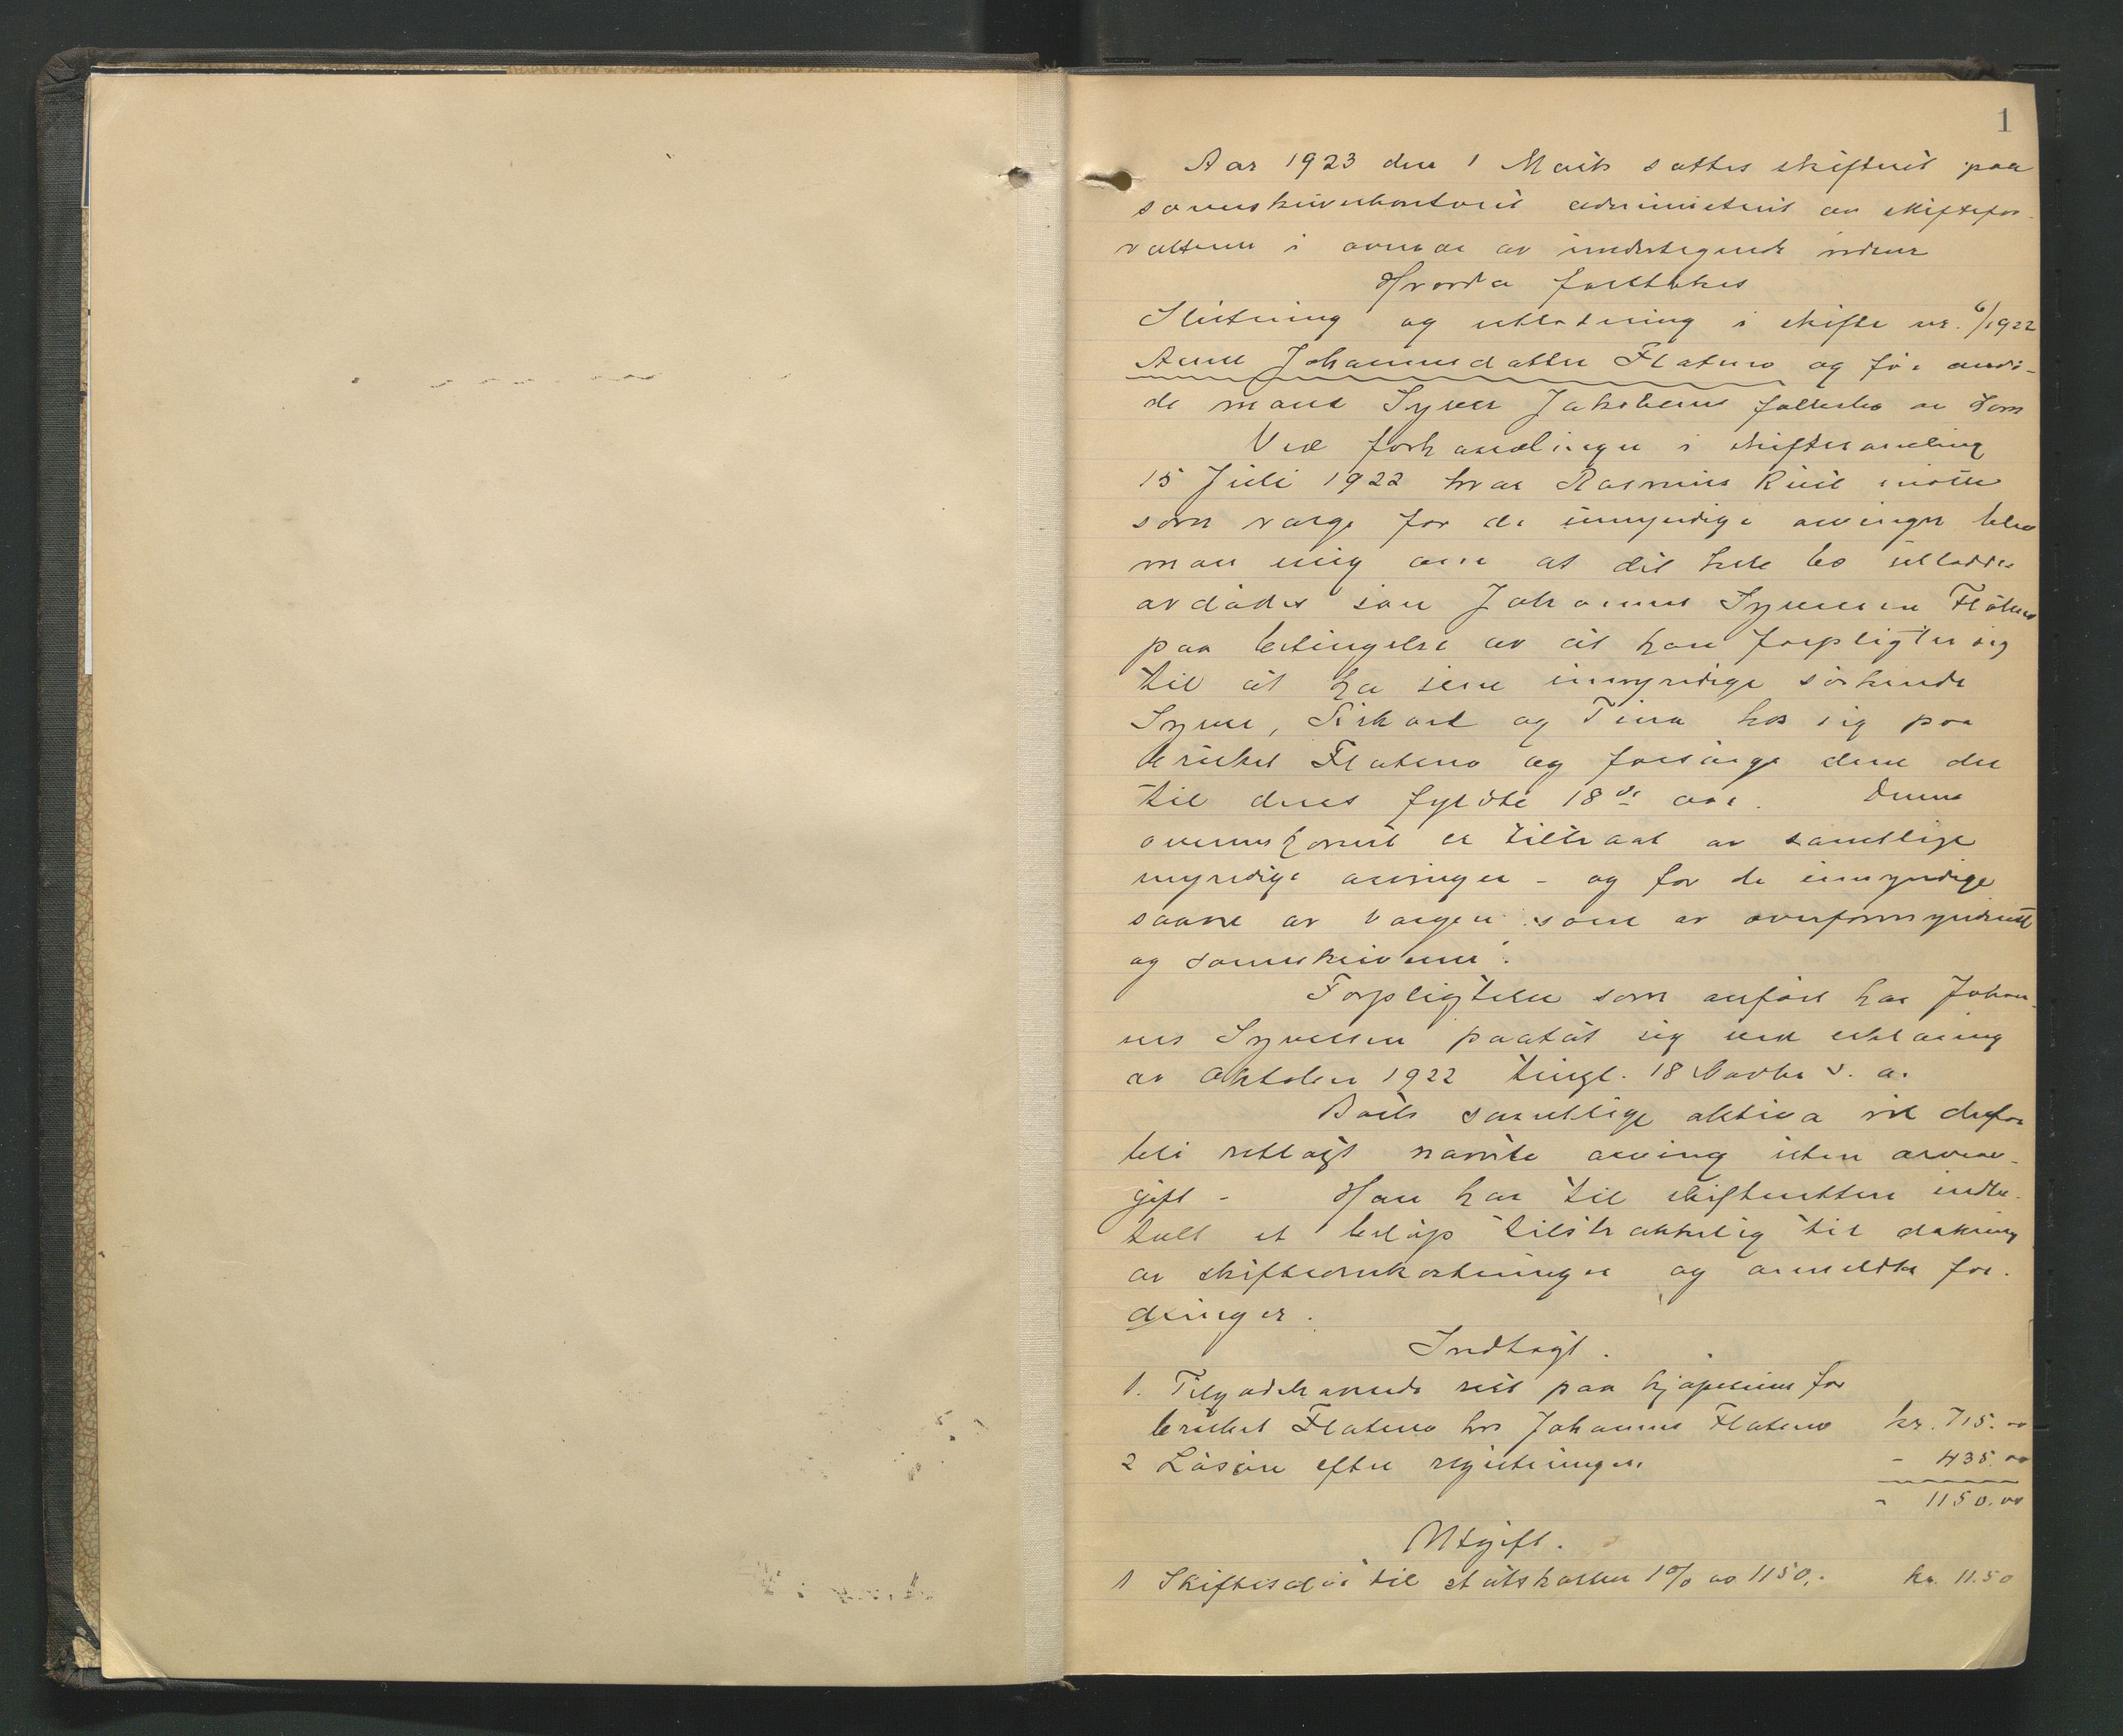 1
Aar 1923 den 1 Marts sattes skifteret paa
sorenskriverkontoret administrert av skiftefor-
valteren i overvær av undertegnede vidner
Hvorda foretokes
Slutning og utlodning i skifte nr. 6/1922
Anne Johannesdatter Flateno og før avdø-
de mand Syver Jakobsens fællesbo av Lom
Ved forhandlinger i skiftesamling
15 Juli 1922 hvor Rasmus møtte
som verge for de umyndige arvinger blev
man enig om at det hele bo utloddes
avdødes søn Johannes Syversen Flateno
paa betingelse av at han forpligter sig
til at ha sine umyndige søskende
Syver, og Tina hos sig paa
bruket Flateno og forsørge dem der
til deres fyldte 18de aar. Denne
overenskomst er tiltraat av samtlige
myndige arvinger - og for de umyndige
saavel av vergen som av overformynderiet
og sorenskriveren.
Forpligtelse som anført har Johan-
nes Syversen paatat sig ved erklæring
av Oktober 1922 tingl. 18 Novbr s. a.
Boets samtlige aktiva vil derfor
bli utlagt nævnte arving uten arveav-
gift - Han har til skifteretten indbe-
talt et beløp tilstrækkelig til dækning
av skifteomkostninger og anmeldte for-
dringer.
Indtægt.
1. Tilgodehavende rest paa kjøpesum for
bruket Flateno hos Johannes Flateno kr. 715.00
2 Løsøre efter registreringen - 435.00
- 1150.00
Utgift.
1 Skiftesdør til statskassen 1% av 1150,- kr. 11.50